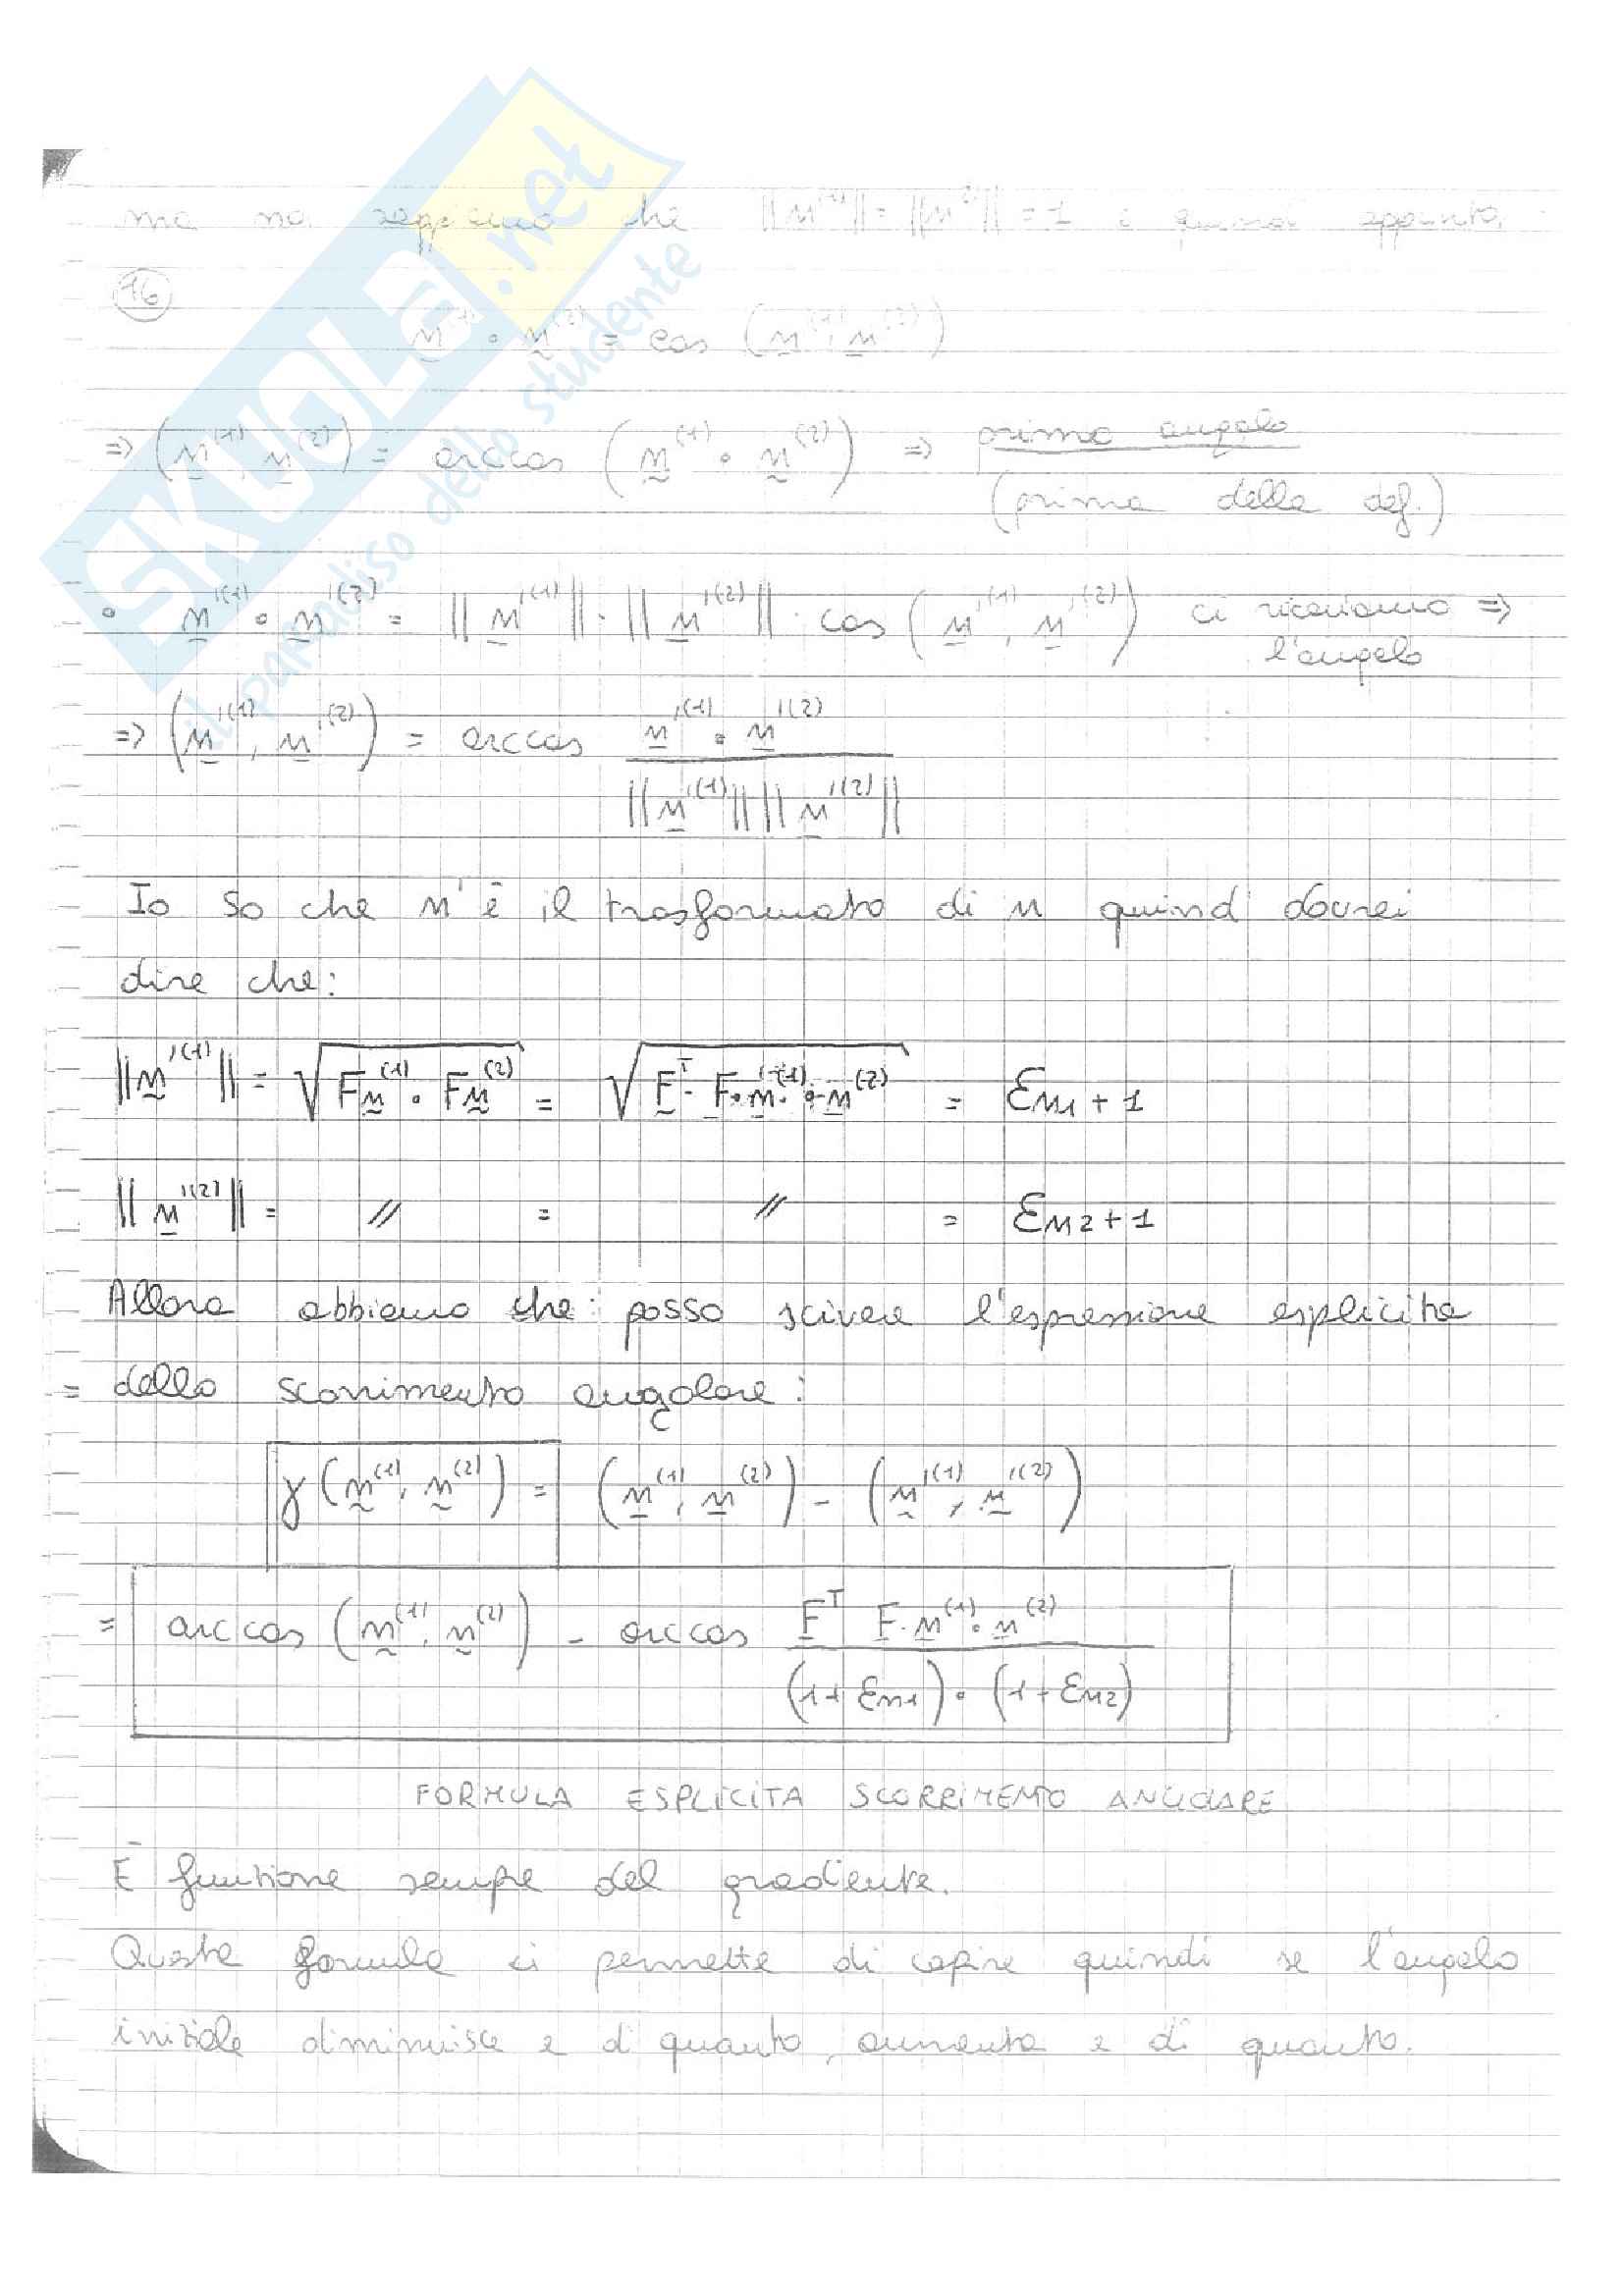 ma noi sappiamo che ||n⁽¹⁾|| = ||n⁽²⁾|| = 1 e quindi appunto
16
n⁽¹⁾ • n⁽²⁾ = cos (n⁽¹⁾, n⁽²⁾)
=> (n⁽¹⁾, n⁽²⁾) = arccos (n⁽¹⁾ • n⁽²⁾) => primo angolo
(prima della def.)
• n'⁽¹⁾ • n'⁽²⁾ = ||n'⁽¹⁾|| · ||n'⁽²⁾|| · cos (n'⁽¹⁾, n'⁽²⁾) ci ricaviamo =>
l'angolo
=> (n'⁽¹⁾, n'⁽²⁾) = arccos n'⁽¹⁾ • n'⁽²⁾
||n'⁽¹⁾|| ||n'⁽²⁾||
Io so che n' è il trasformato di n quind dovrei
dire che:
||n'⁽¹⁾|| = √(Fn⁽¹⁾ • Fn⁽²⁾) = √(Fᵀ · F · n⁽¹⁾ • n⁽²⁾) = εn1 + 1
||n'⁽²⁾|| = // = // = εn2 + 1
Allora abbiamo che: posso scivere l'espressione esplicita
= dello scorrimento angolare:
γ (n⁽¹⁾, n⁽²⁾) = (n⁽¹⁾, n⁽²⁾) - (n'⁽¹⁾, n'⁽²⁾)
= arccos (n⁽¹⁾, n⁽²⁾) - arccos Fᵀ F · n⁽¹⁾ • n⁽²⁾
(1 + εn1) • (1 + εn2)
FORMULA ESPLICITA SCORRIMENTO ANGOLARE
È funzione sempre del gradiente.
Questa formula ci permette di capire quindi se l'angolo
iniziale diminuisce e di quanto, aumenta e di quanto.
SKUOLA.net
il paradiso dello studente